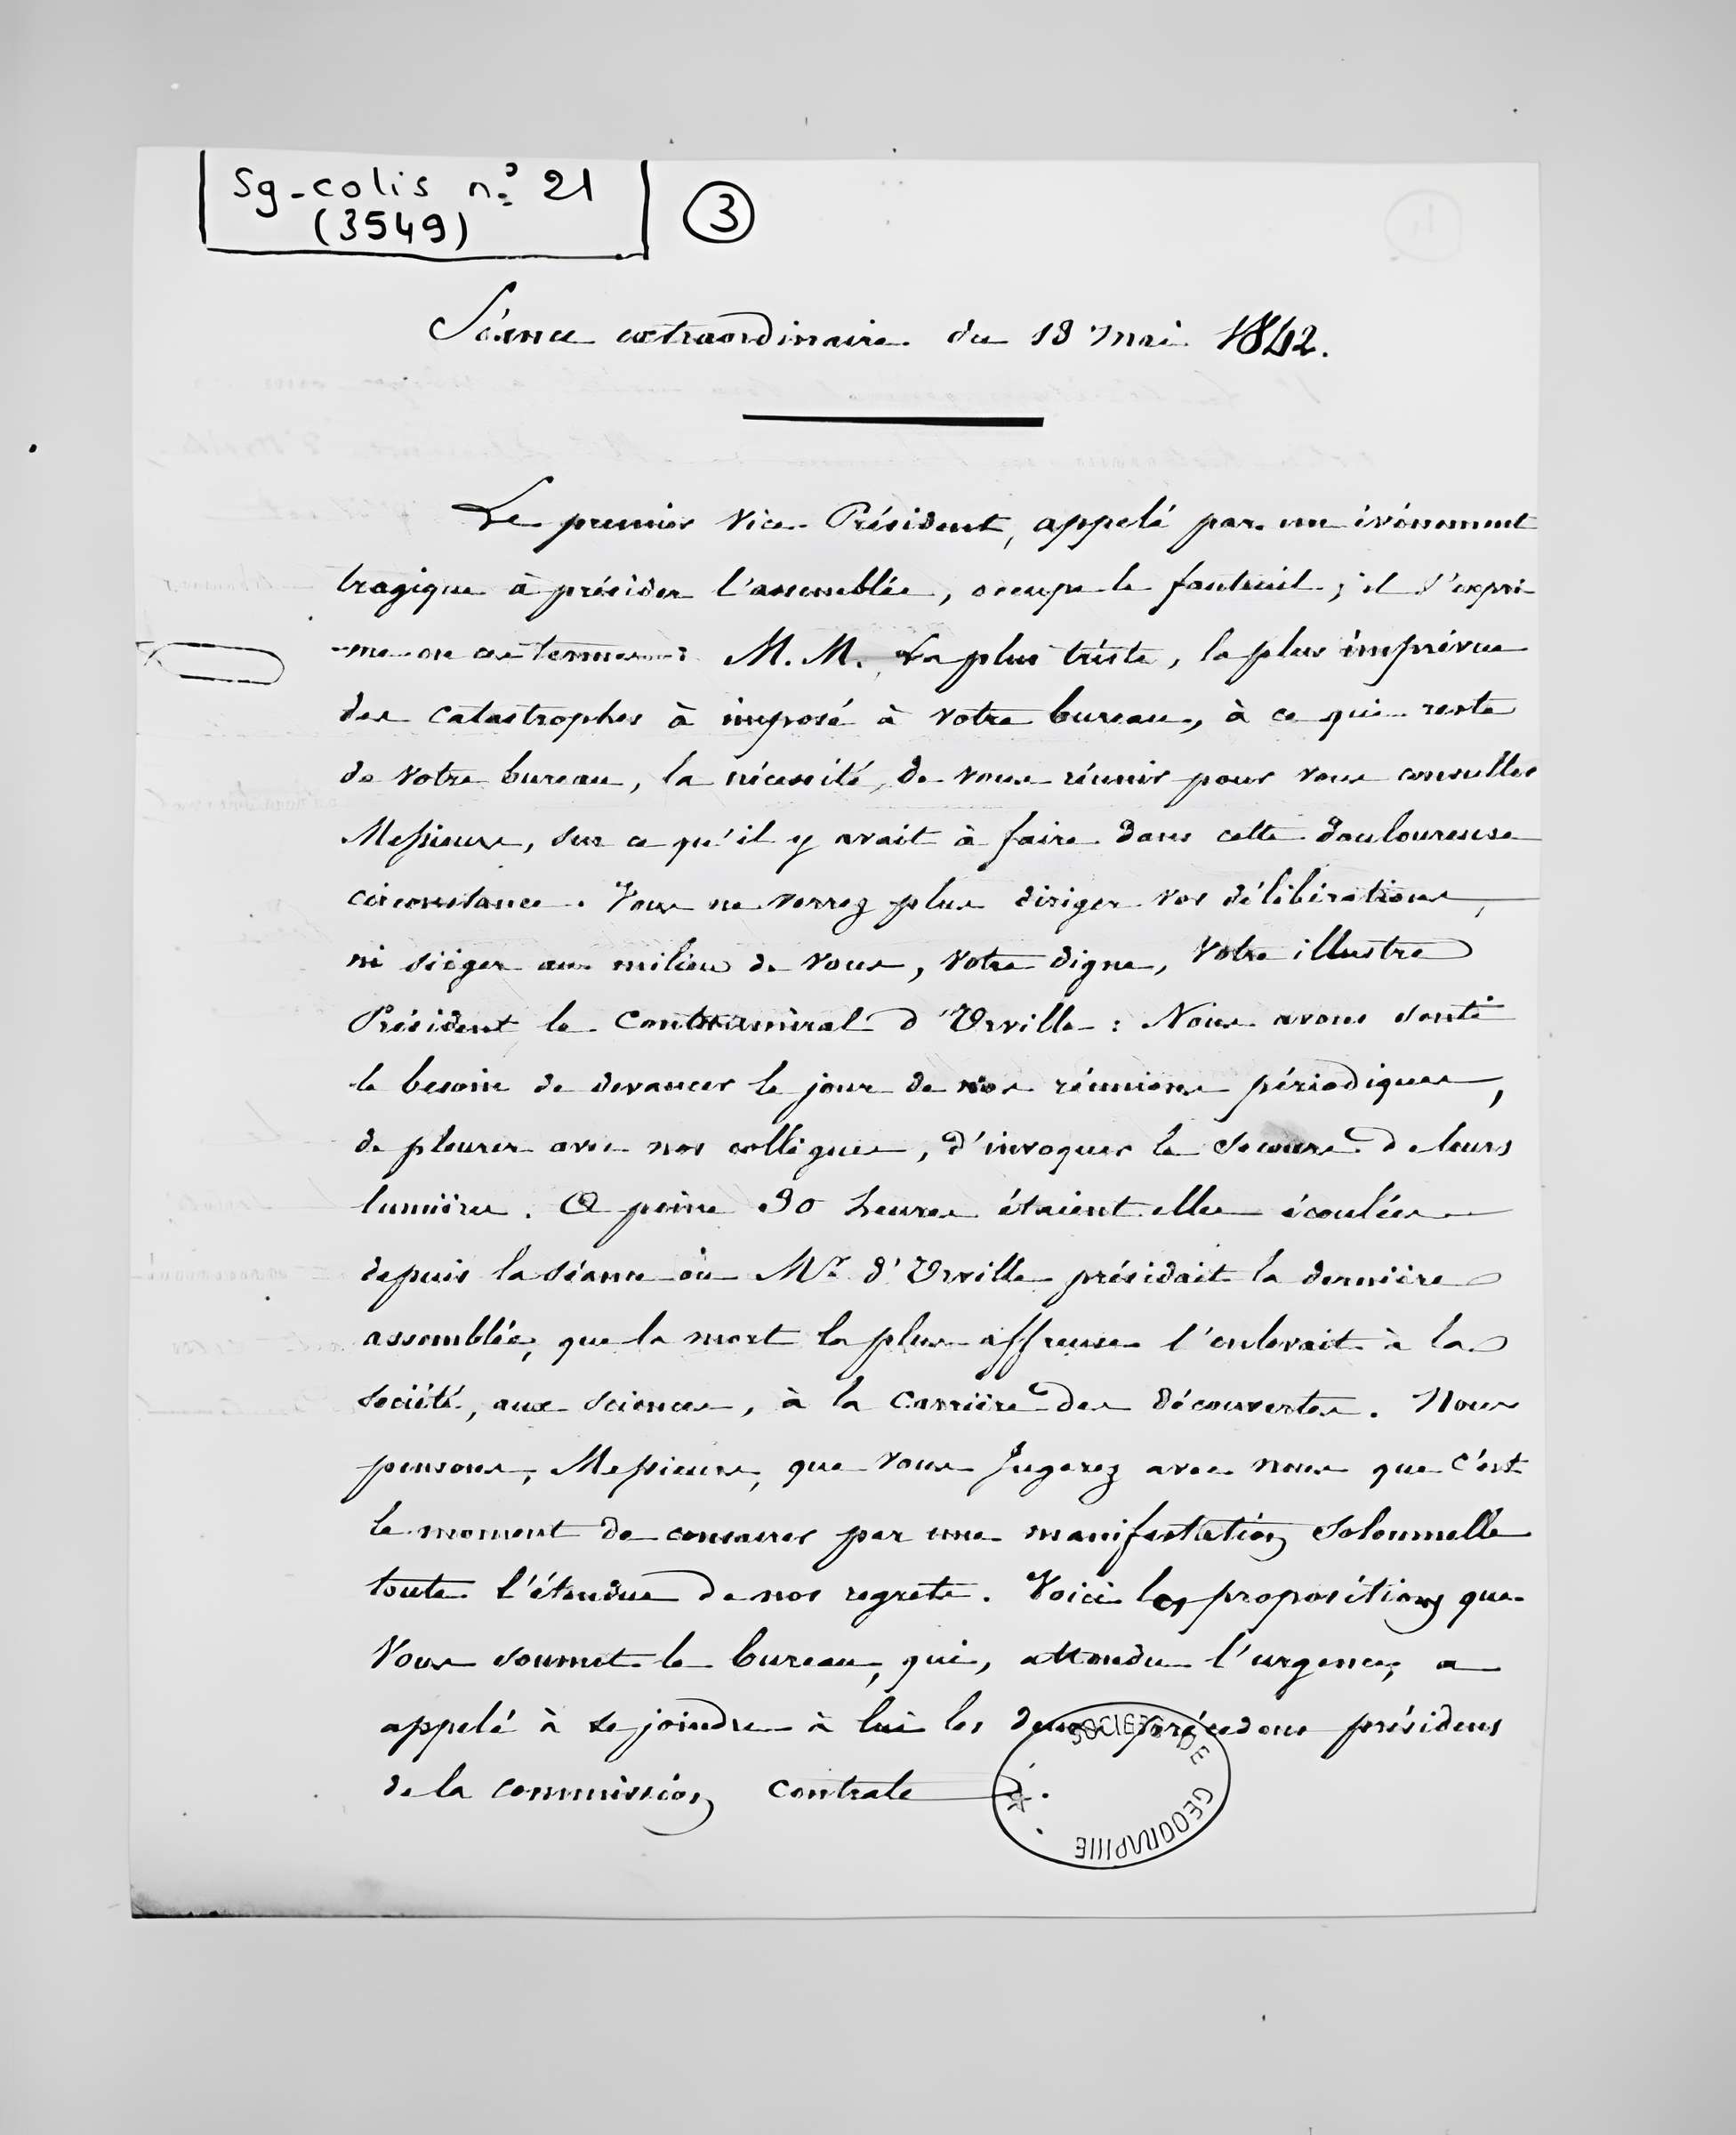 Sg-colis n.º 21
(3549)
3
Séance extraordinaire du 13 mai 1842.
Le premier Vice-Président, appelé par un événement
tragique à présider l'assemblée, occupe le fauteuil ; il s'expri-
-me en ces termes : M.M. La plus triste, la plus imprévue
des catastrophes à imposé à votre bureau, à ce qui reste
de votre bureau, la nécessité, de vous réunir pour vous consulter
Messieurs, sur ce qu'il y avait à faire dans cette douloureuse
circonstance. Vous ne verrez plus diriger vos délibérations,
ni siéger au milieu de vous, votre digne, votre illustre
Président le Contreamiral d'Urville : Nous avons senti
le besoin de devancer le jour de nos réunions périodiques,
de pleurer avec nos collègues, d'invoquer le secours de leurs
lumières. A peine 30 heures étaient elles écoulées
depuis la séance où Mr. d'Urville présidait la dernière
assemblée, que la mort la plus affreuse l'enlevait à la
société, aux sciences, à la carrière des découvertes. Nous
pensons, Messieurs, que vous jugerez avec nous que c'est
le moment de consacrer par une manifestation solennelle
toute l'étendue de nos regrets. Voici les propositions que
vous soumet le bureau, qui, attendu l'urgence, a
appelé à se joindre à lui les deux précédens présidens
de la commission centrale.
SOCIÉTÉ DE GEOGRAPHIE